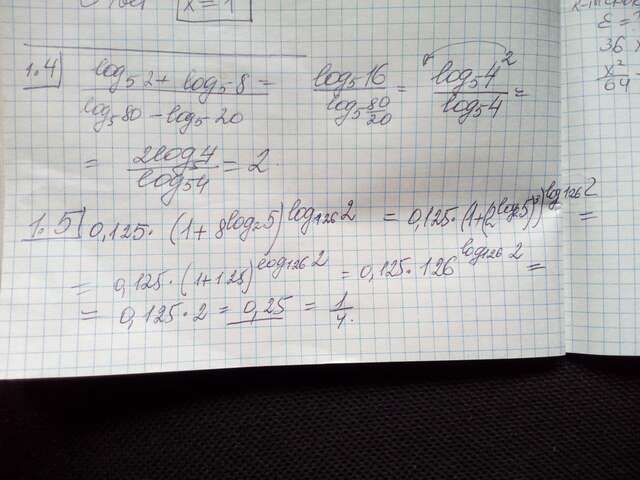 x = 1
ε = ?
36
x²
64
1.4) log₅2 + log₅8 / log₅80 − log₅20 = log₅16 / log₅ 80/20 = log₅4² / log₅4 =
= 2log₅4 / log₅4 = 2.
1.5) 0,125 · (1 + 8^log₂5)^log₁₂₆2 = 0,125 · (1 + (2^log₂5)³)^log₁₂₆2 =
= 0,125 · (1 + 125)^log₁₂₆2 = 0,125 · 126^log₁₂₆2 =
= 0,125 · 2 = 0,25 = 1/4.